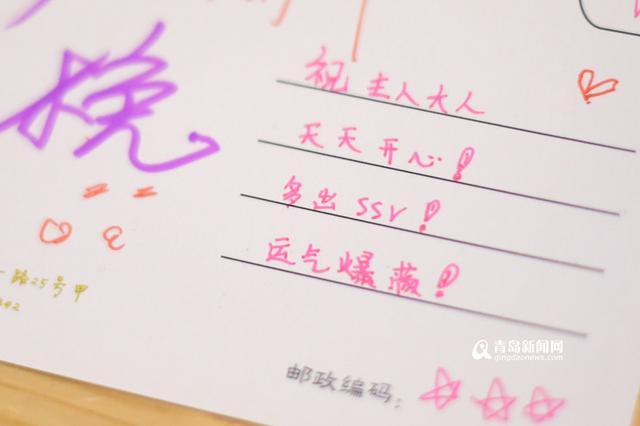 挽
祝主人大人
天天开心!
多出SSr!
运气爆!
路25号甲
邮政编码:
青岛新闻网
qingdaonews.com